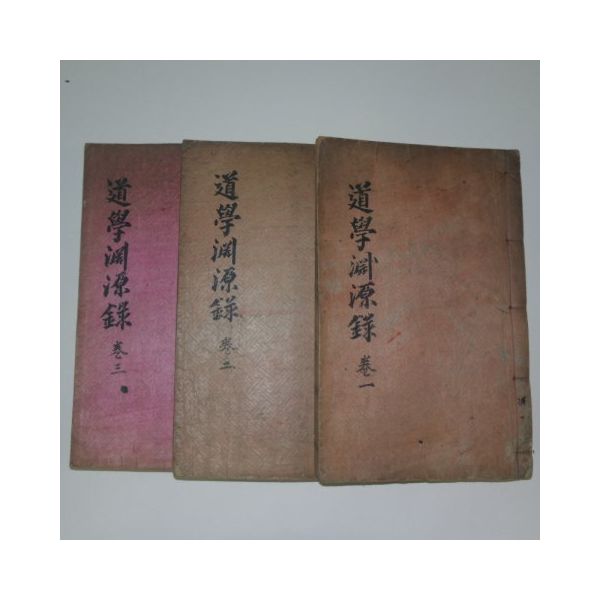 道學淵源錄 卷一
道學淵源錄 卷二
道學淵源錄 卷三